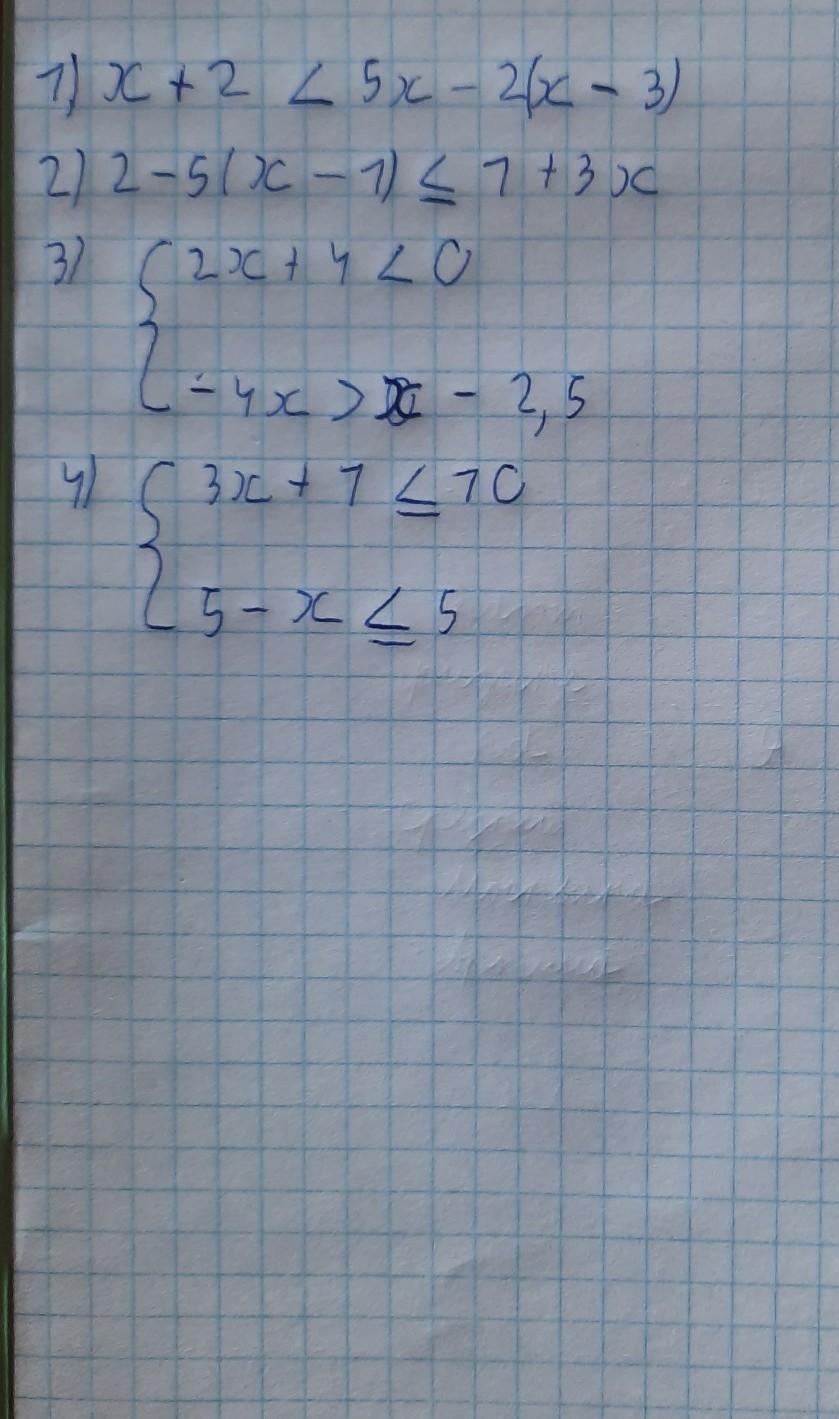 1) x + 2 < 5x - 2(x - 3)
2) 2 - 5(x - 1) ≤ 1 + 3x
3) { 2x + 4 < 0
-4x > x - 2,5
4) { 3x + 1 ≤ 10
5 - x ≤ 5